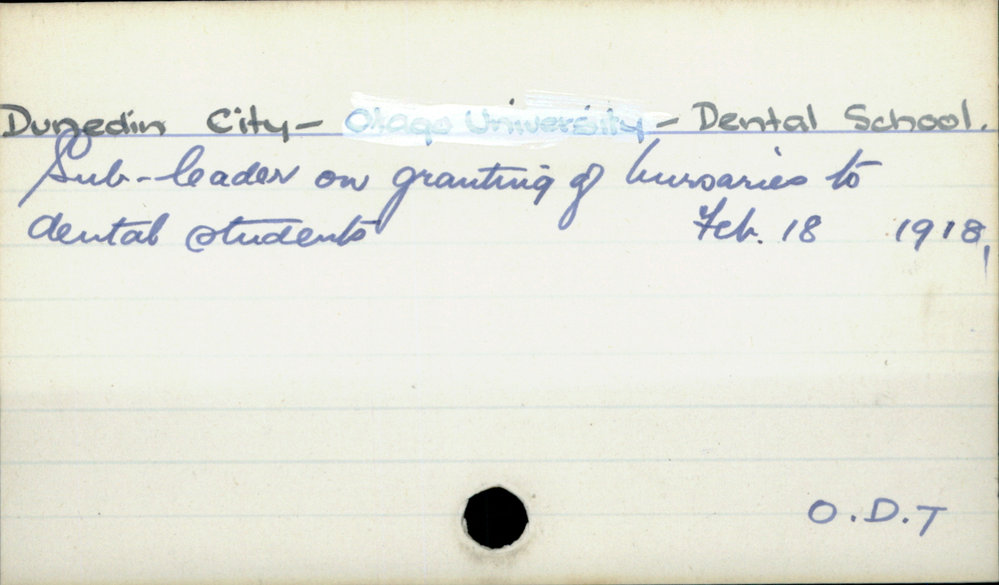 Dunedin City - Otago University - Dental School.
Sub-leader on granting of bursaries to
dental students Feb. 18 1918,
O.D.T